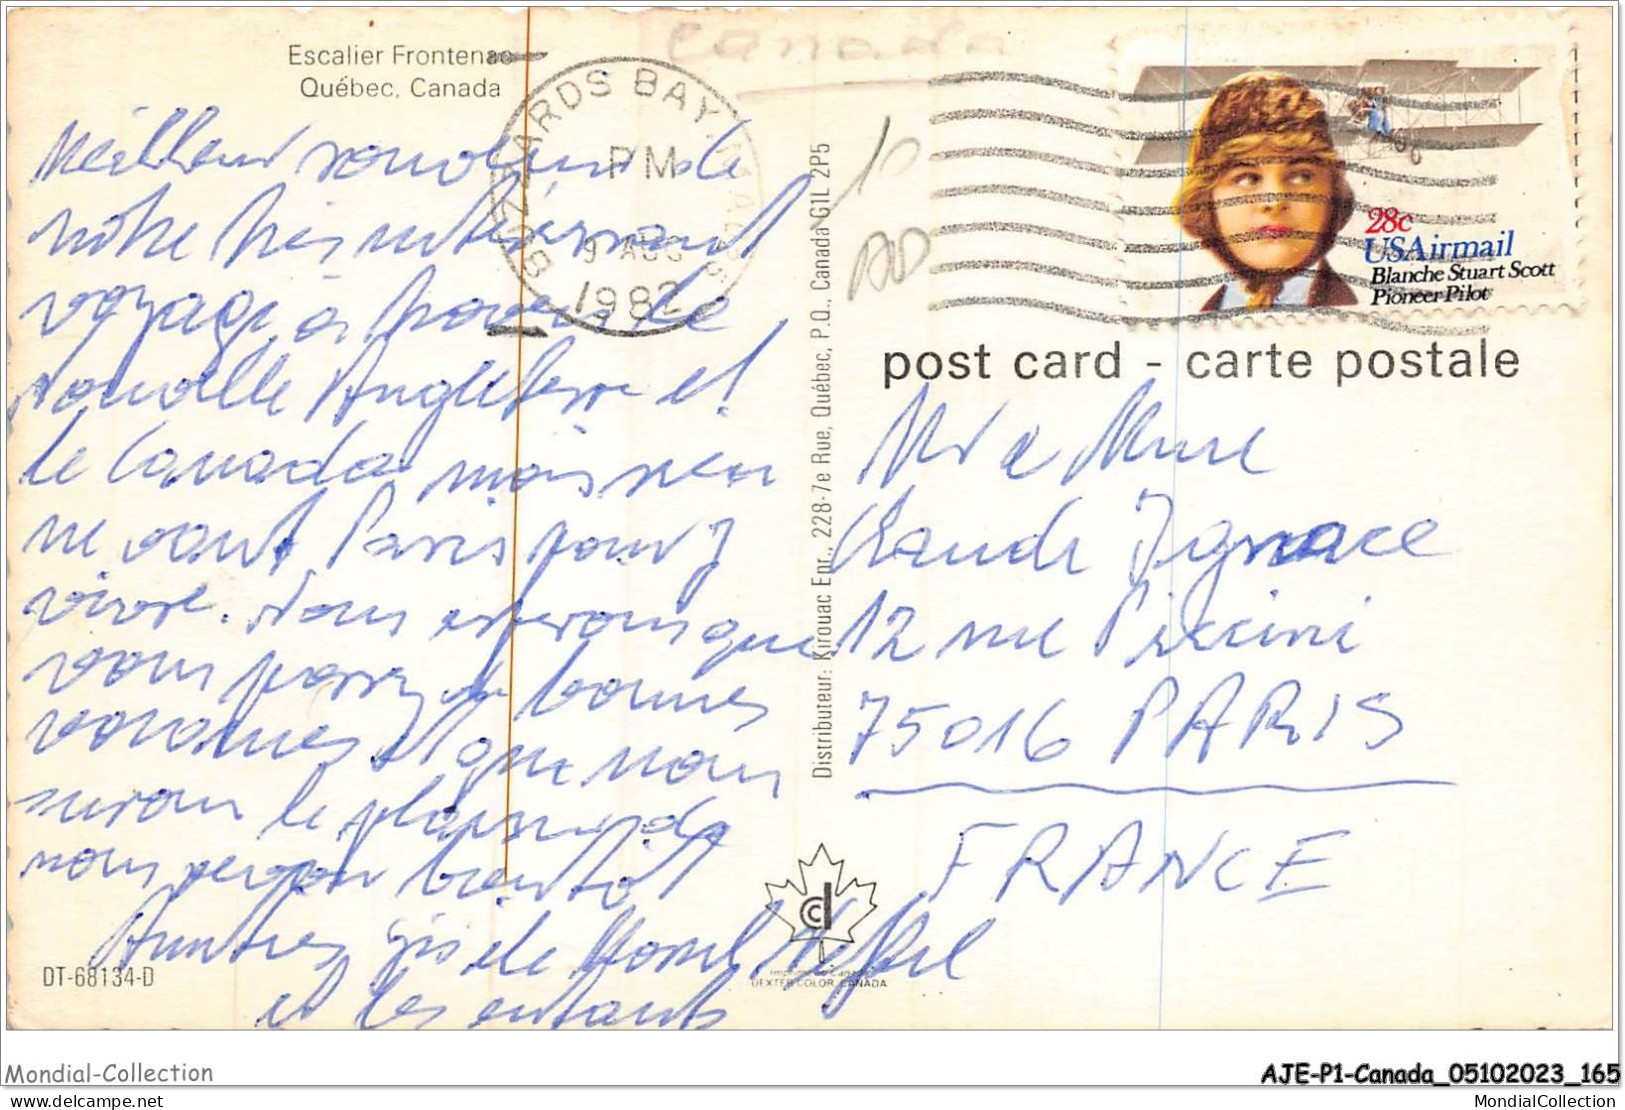 Escalier Frontenac
Québec, Canada
Canada
BUZZARDS BAY, MA
PM
9 AUG
1982
10
28c
USAirmail
Blanche Stuart Scott
Pioneer Pilot
post card - carte postale
Meilleur souvenir de
notre très intéressant
voyage à travers la
Nouvelle Angleterre et
le Canada mais rien
ne vaut Paris pour y
vivre. Nous espérons que
vous passez de bonnes
vacances et que nous
aurons le plaisir de
nous revoir bientôt
Amitiés Gisèle
et les enfants
Distributeur: Kirouac Enr., 228-7e Rue, Québec, P.Q., Canada G1L 2P5
Mr & Mme
Claude Ignace
12 rue Piccini
75016 PARIS
FRANCE
DT-68134-D
Imprimé au Canada
DEXTER COLOR CANADA
Mondial-Collection
AJE-P1-Canada_05102023_165
delcampe.net
MondialCollection